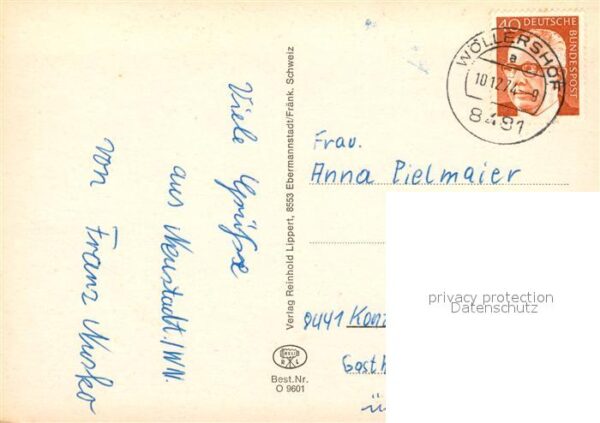 Viele Grüsse
aus Neustadt/WN.
von Franz Musko
Verlag Reinhold Lippert, 8553 Ebermannstadt/Fränk. Schweiz
RL
Best.Nr.
O 9601
40 DEUTSCHE
BUNDESPOST
WÖLLERSHOF
a
10.12.74-9
8481
Frau.
Anna Pielmaier
privacy protection
Datenschutz
8441 Konz
Gasth
ü